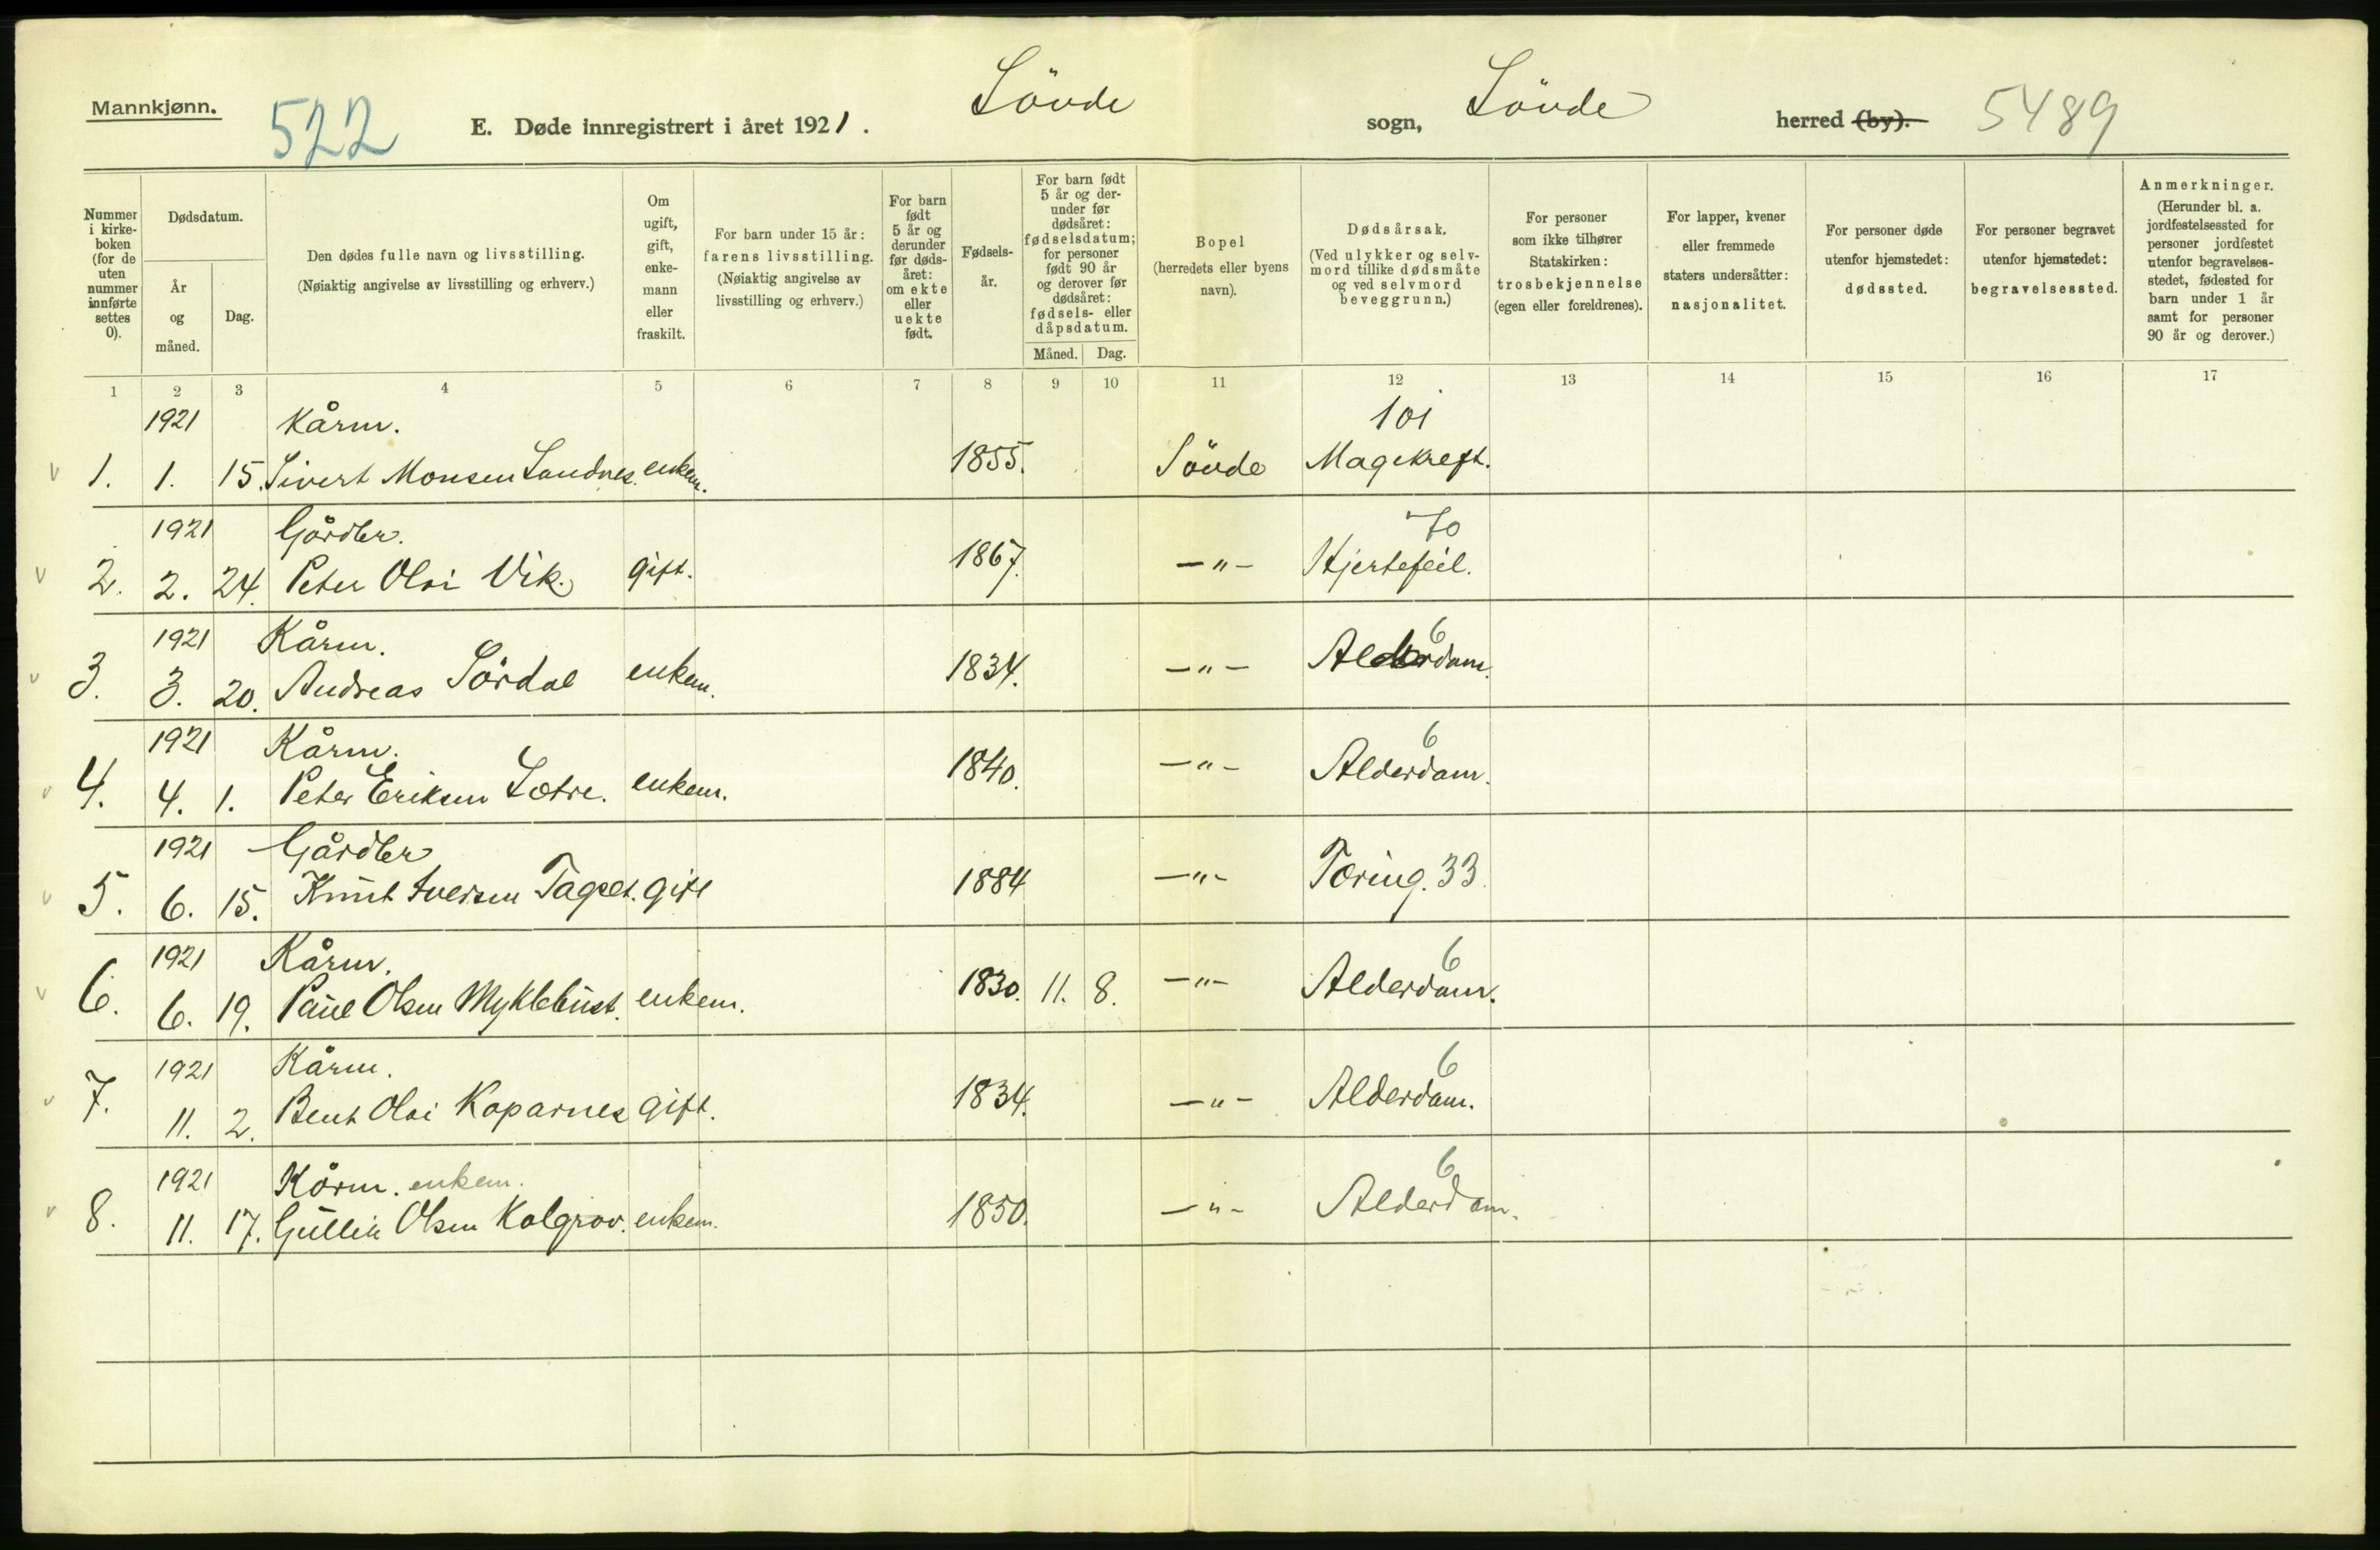 Mannkjønn.
522
E. Døde innregistrert i året 1921.
Sövde sogn, Sövde herred (by).
5489
Nummer i kirkeboken (for de uten nummer innførte settes 0).
Dødsdatum.
År og måned.
Dag.
Den dødes fulle navn og livsstilling.
(Nøiaktig angivelse av livsstilling og erhverv.)
Om ugift, gift, enkemann eller fraskilt.
For barn under 15 år: farens livsstilling.
(Nøiaktig angivelse av livsstilling og erhverv.)
For barn født 5 år og derunder før dødsåret: om ekte eller uekte født.
Fødselsår.
For barn født 5 år og derunder før dødsåret: fødselsdatum; for personer født 90 år og derover før dødsåret: fødsels- eller dåpsdatum.
Måned. Dag.
Bopel (herredets eller byens navn).
Dødsårsak.
(Ved ulykker og selvmord tillike dødsmåte og ved selvmord beveggrunn.)
For personer som ikke tilhører Statskirken: trosbekjennelse (egen eller foreldrenes).
For lapper, kvener eller fremmede staters undersåtter: nasjonalitet.
For personer døde utenfor hjemstedet: dødssted.
For personer begravet utenfor hjemstedet: begravelsessted.
Anmerkninger.
(Herunder bl. a. jordfestelsessted for personer jordfestet utenfor begravelsesstedet, fødested for barn under 1 år samt for personer 90 år og derover.)
1 2 3 4 5 6 7 8 9 10 11 12 13 14 15 16 17
1921 Kårm. 101
v 1. 1. 15. Sivert Monsen Sandnes. enkem. 1855. Sövde Magekreft.
1921 Gårdbr. 70
v 2. 2. 24. Peter Olai Vik. gift. 1867. —"— Hjertefeil.
1921 Kårm. 6
v 3. 3. 20. Andreas Sördal enkem. 1834. —"— Alderdom.
1921 Kårm. 6
v 4. 4. 1. Peter Eriksen Sætre. enkem. 1840. —"— Alderdom.
1921 Gårdbr
v 5. 6. 15. Knut Iversen gift 1884 —"— Tæring. 33.
1921 Kårm. 6
v 6. 6. 19. Paul Olsen Myklebust. enkem. 1830. 11. 8. —"— Alderdom.
1921 Kårm. 6
v 7. 11. 2. Bent Olai Koparnes gift. 1834. —"— Alderdom.
1921 Kårm. enkem. 6
v 8. 11. 17. Gullik Olsen Kalgrav. enkem. 1850. —"— Alderdom.